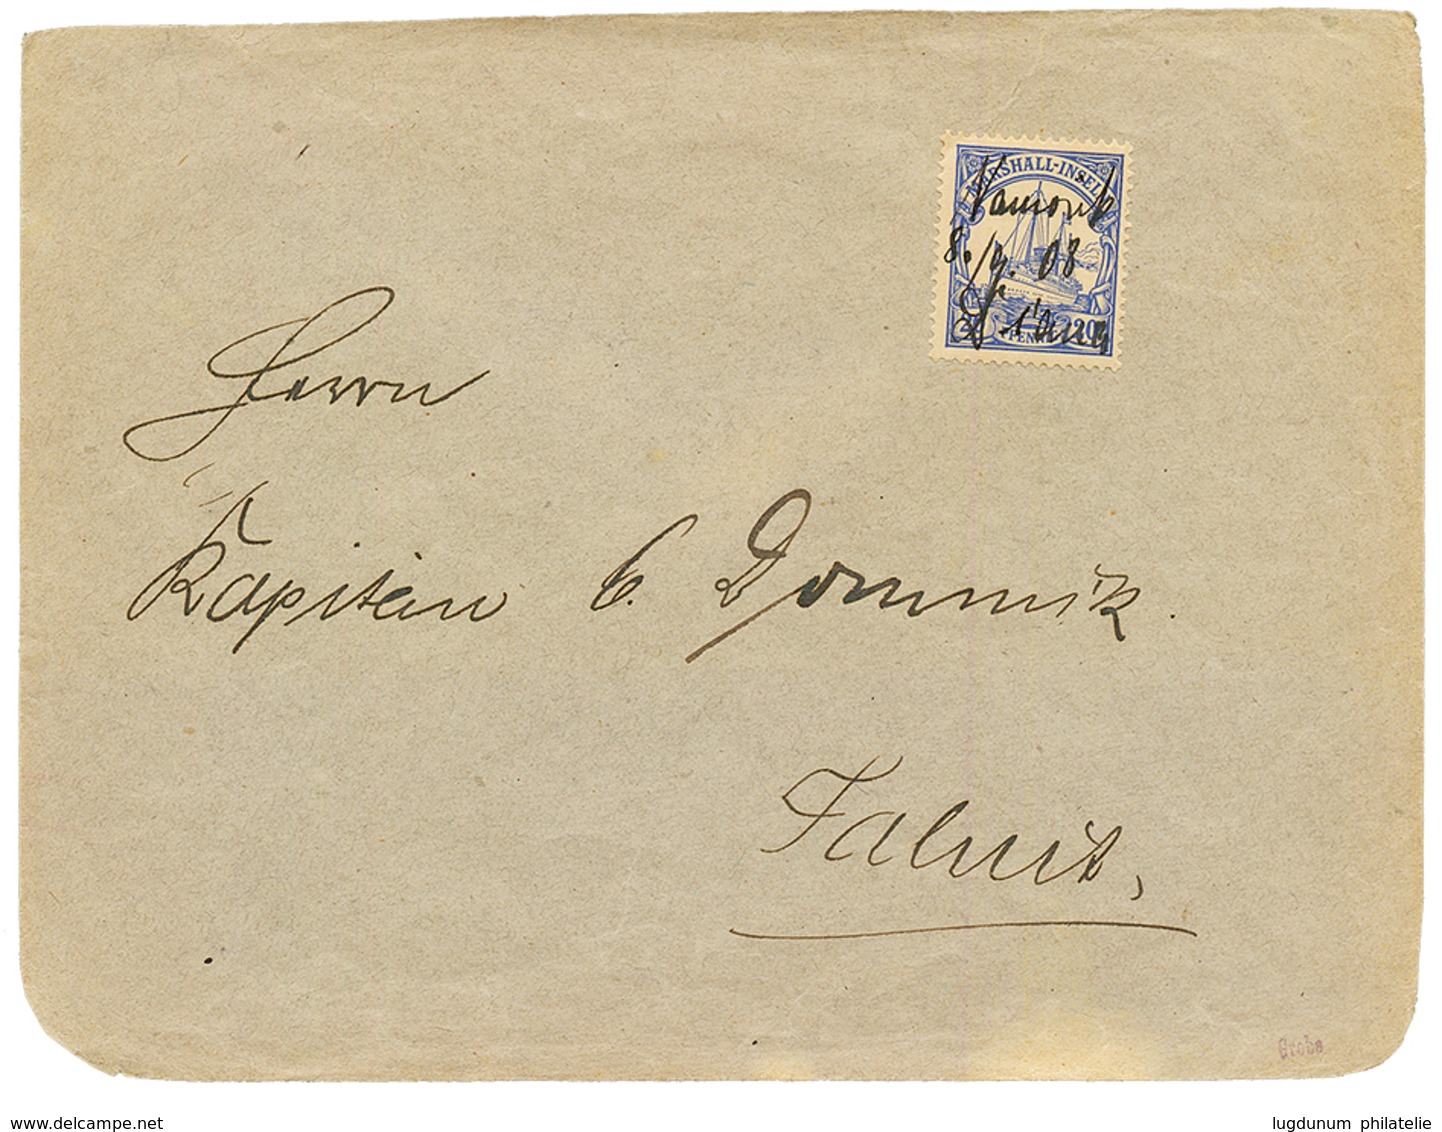 MARSHALL-INSELN
Namorik
8./9. 08
20
PFENNIG
Herrn
Kapitän C. Dominik.
Jaluit,
Grobe
www.delcampe.net
lugdunum philatelie